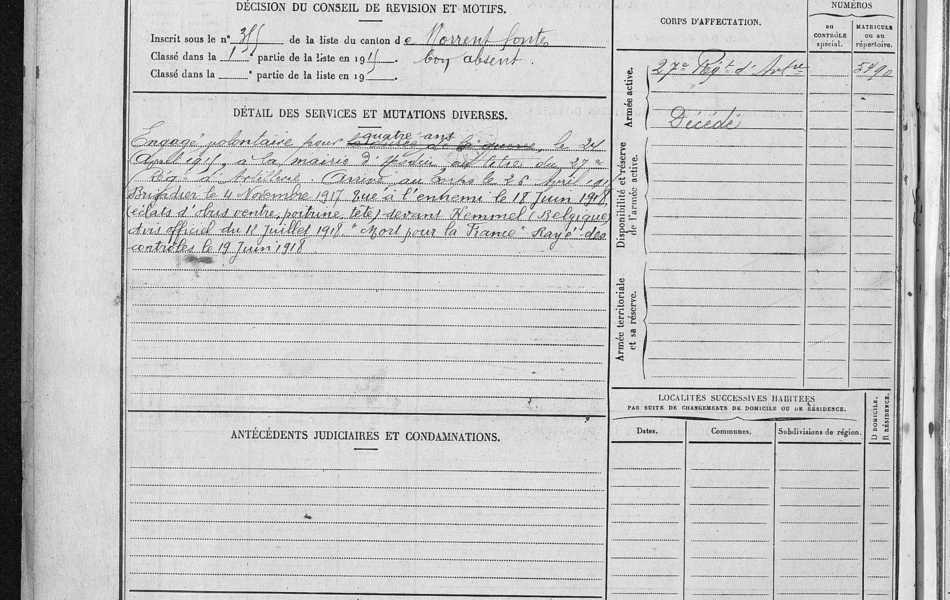 DÉCISION DU CONSEIL DE REVISION ET MOTIFS.
Inscrit sous le n° 355 de la liste du canton de Norrent fontes
Classé dans la 1 e partie de la liste en 1915. Bon absent.
Classé dans la e partie de la liste en 19 .
DÉTAIL DES SERVICES ET MUTATIONS DIVERSES.
quatre ans
Engagé volontaire pour la durée de la guerre, le 24
April 1915, à la mairie d'Hesdin au titre du 27e
Régt d'Artillerie. Arrivé au Corps le 26 Avril 1915
Brigadier le 4 Novembre 1917 Tué à l'ennemi le 18 Juin 1918,
(éclats d'obus ventre, poitrine, tête) devant Kemmel (Belgique)
Avis officiel du 12 Juillet 1918 "Mort pour la France" Rayé des
contrôles le 19 Juin 1918
ANTÉCÉDENTS JUDICIAIRES ET CONDAMNATIONS.
CORPS D'AFFECTATION.
NUMÉROS
au CONTRÔLE spécial.
MATRICULE ou au répertoire.
Armée active.
27e Régt d'Artrie
Décédé
Disponibilité et réserve de l'armée active.
Armée territoriale et sa réserve.
LOCALITÉS SUCCESSIVES HABITÉES
PAR SUITE DE CHANGEMENTS DE DOMICILE OU DE RÉSIDENCE.
Dates.
Communes.
Subdivisions de région.
D DOMICILE.
R RÉSIDENCE.